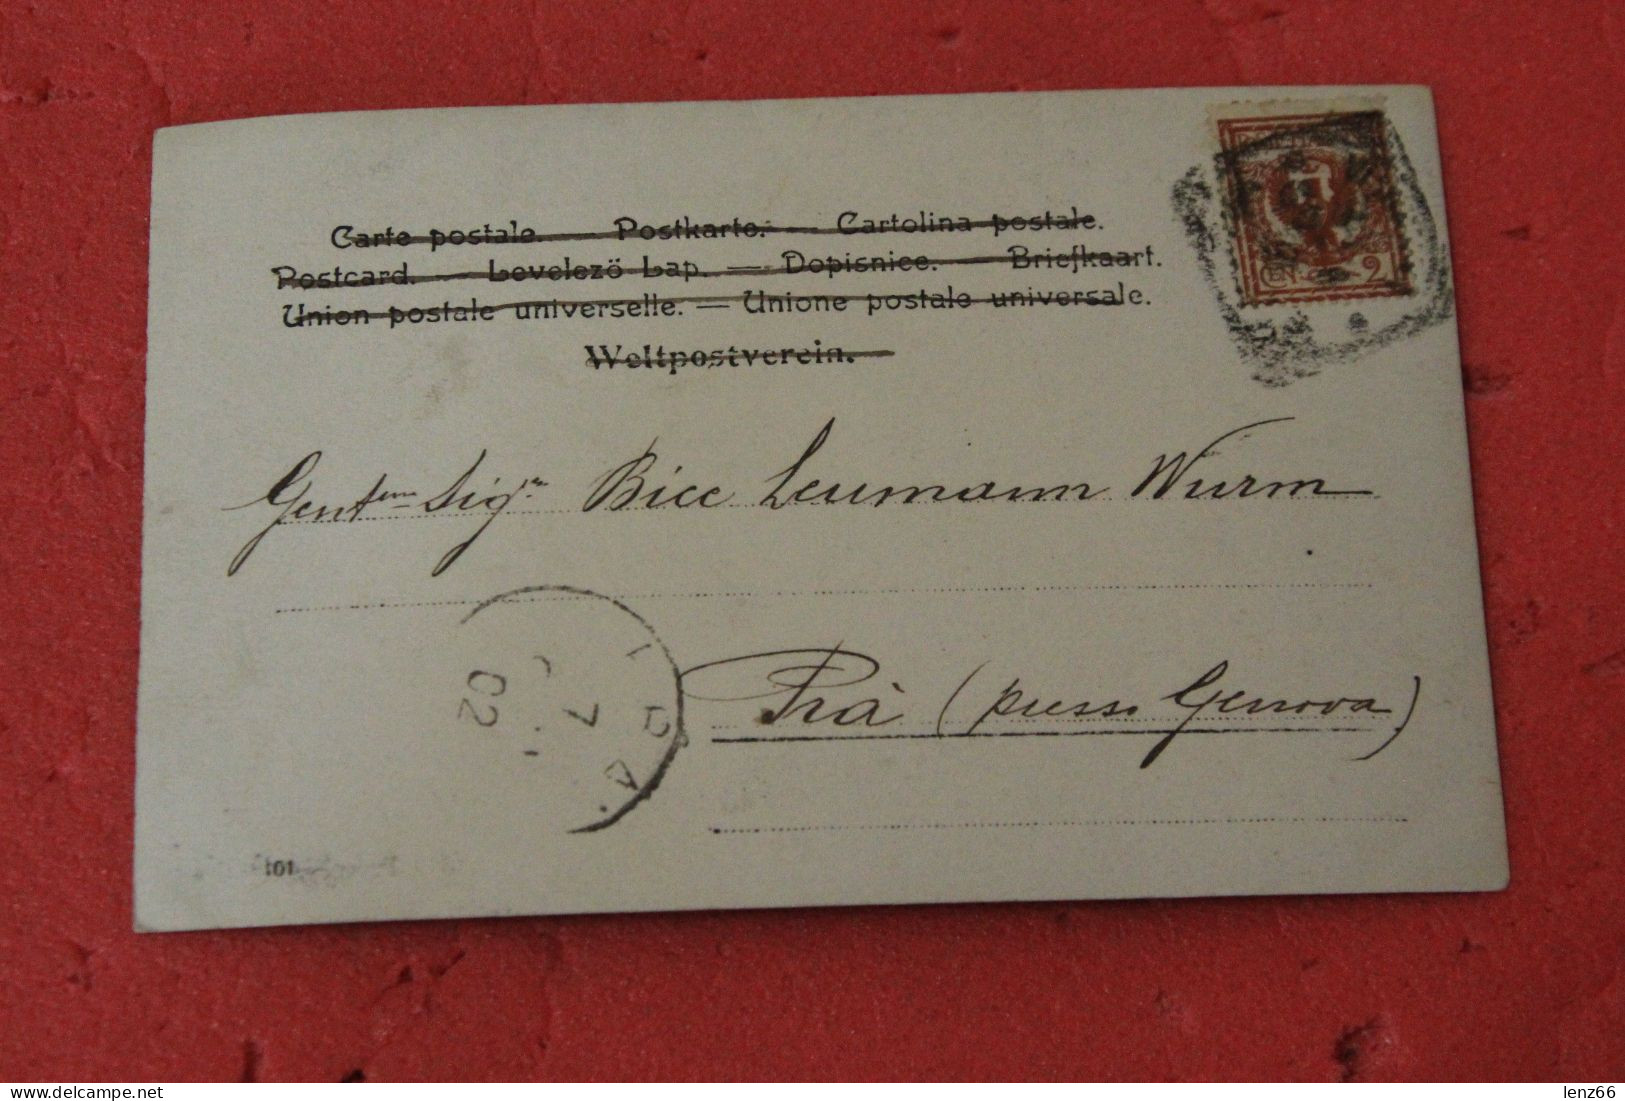 Carte postale. — Postkarte. — Cartolina postale.
Postcard. — Levelező Lap. — Dopisnice. — Briefkaart.
Union postale universelle. — Unione postale universale.
Weltpostverein.
CEN. 2
Gent.ma Sig.ra Bice Leumann Wurm
7
02
Prà (presso Genova)
101
delcampe.net
lenz66